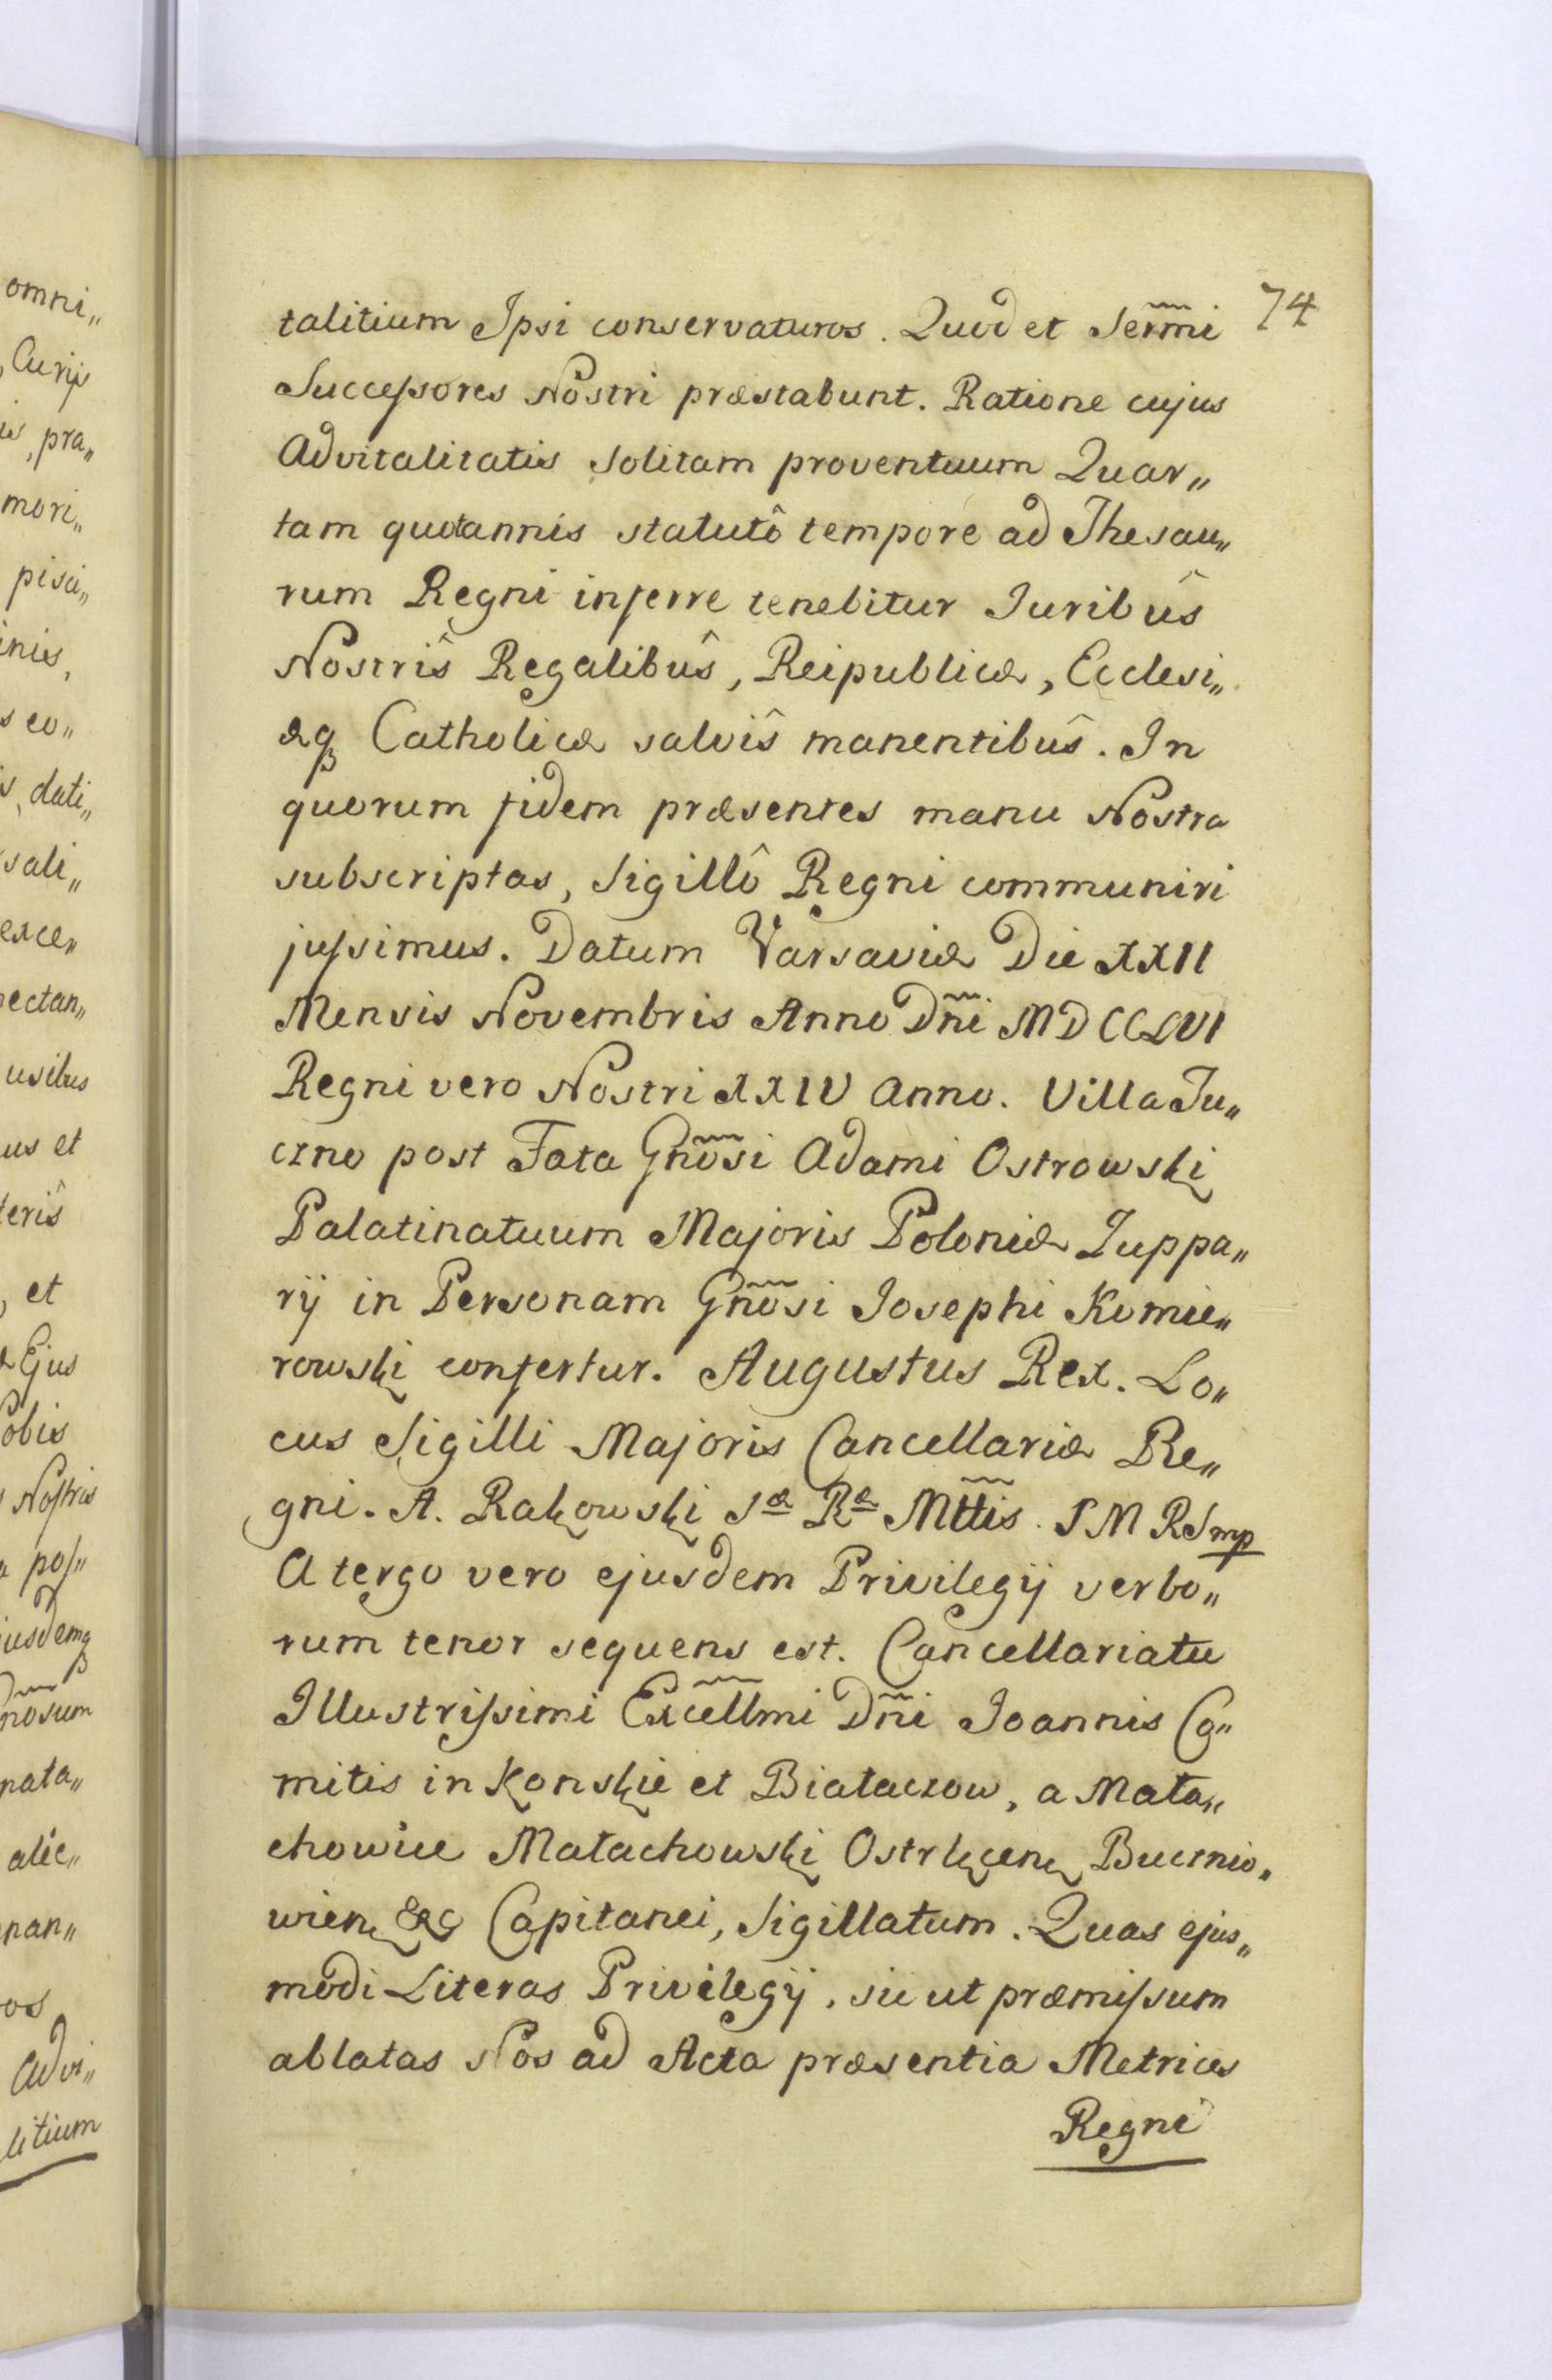 omni„
Curijs
is, pra„
mori„
pisci„
inis,
s co„
s, dati„
sali„
exce„
nectan„
usibus
us et
terîs
, et
æ Ejus
obis
Nostris
pos„
jusdemq
nosum
nata„
alie„
nan„
os
Advi„
litium
74
talitium Ipsi conservaturos. Quod et Serm̃i
Successores Nostri præstabunt. Ratione cujus
Advitalitatis solitam proventuum Quar„
tam quotannis statutô tempore ad Thesau„
rum Regni inferre tenebitur Juribûs
Nostrîs Regalibûs, Reipublicæ, Ecclesi„
æq Catholicæ salvîs manentibûs. In
quorum fidem præsentes manu Nostra
subscriptas, Sigillô Regni communiri
jussimus. Datum Varsaviæ Die XXII
Mensis Novembris Anno Dñi MDCCLVI
Regni vero Nostri XXIV Anno. Villa Tu„
czno post Fata Gnõsi Adami Ostrowski
Palatinatuum Majoris Poloniæ Zuppa„
rij in Personam Gnõsi Josephi Komie„
rowski confertur. Augustus Rex. Lo„
cus Sigilli Majoris Cancellariæ Re„
gni. A. Rakowski Sæ Ræ Mttis. S M R S mp
A tergo vero ejusdem Privilegij verbo„
rum tenor sequens est. Cancellariatu
Illustrissimi Excellmi Dñi Joannis Co„
mitis in Konskie et Białaczow, a Mała„
chowice Małachowski Ostrlęcen Bucznio„
wien &c Capitanei, Sigillatum. Quas ejus„
modi Literas Privilegij, sic ut præmissum
ablatas Nos ad Acta præsentia Metrices
Regni